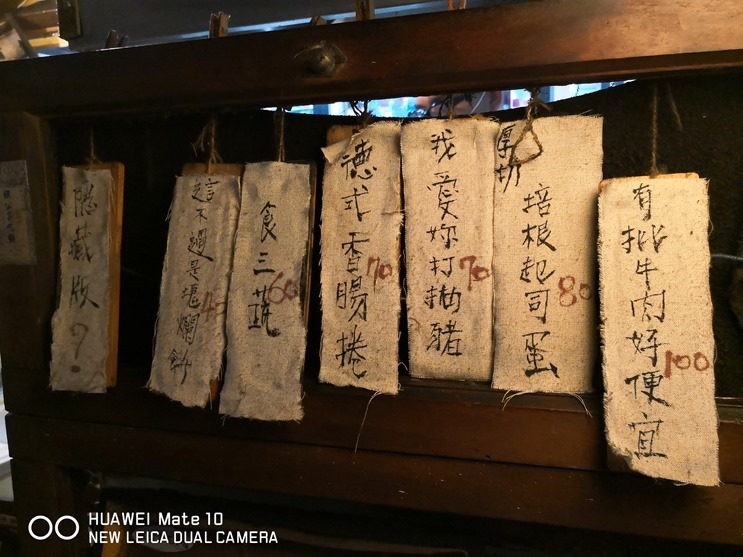 隱藏版?
這不過是塊爛餅
45
食三蔬
60
德式香腸捲
70
我愛妳打拋豬
70
厚切
培根起司蛋
80
有批牛肉好便宜
100
HUAWEI Mate 10
NEW LEICA DUAL CAMERA